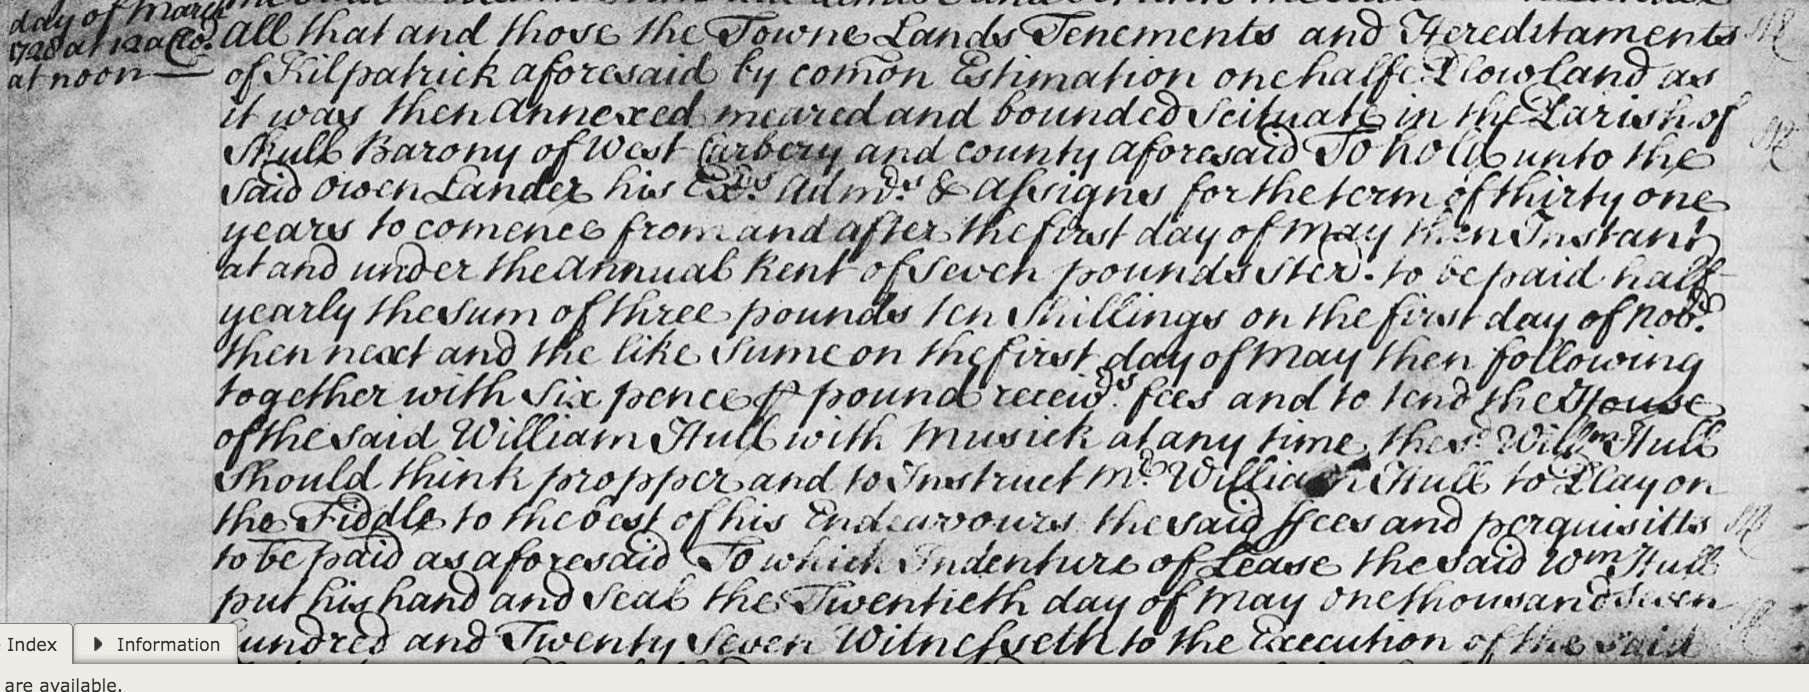 day of March
1728 at 12 a Clo.
at noon
All that and those the Towne Lands Tenements and Hereditaments
of Kilpatrick aforesaid by comon Estimation one halfe Plowland as
it was then Annexed meared and bounded Scituate in the Parish of
Skull Barony of West Carbery and county aforesaid To hold unto the
said Owen Lander his Exrs. Admrs. & Assigns for the term of thirty one
years to comence from and after the first day of May then Instant
at and under the annual Rent of seven pounds ster. to be paid half
yearly the sum of three pounds ten Shillings on the first day of Nobr.
then next and the like sume on the first day of May then following
together with six pence p pound receivrs. fees and to tend the House
of the said William Hull with Musick at any time the sd. Willm Hull
Should think propper and to Instruct Mr. William Hull to Play on
the Fiddle to the best of his Endeavours the said ffees and perquisitts
to be paid as aforesaid To which Indenture of Lease the said Wm Hull
put his hand and seal the Twentieth day of May one thousand seven
hundred and Twenty Seven Witnesseth to the Execution of the said
Index
Information
are available.